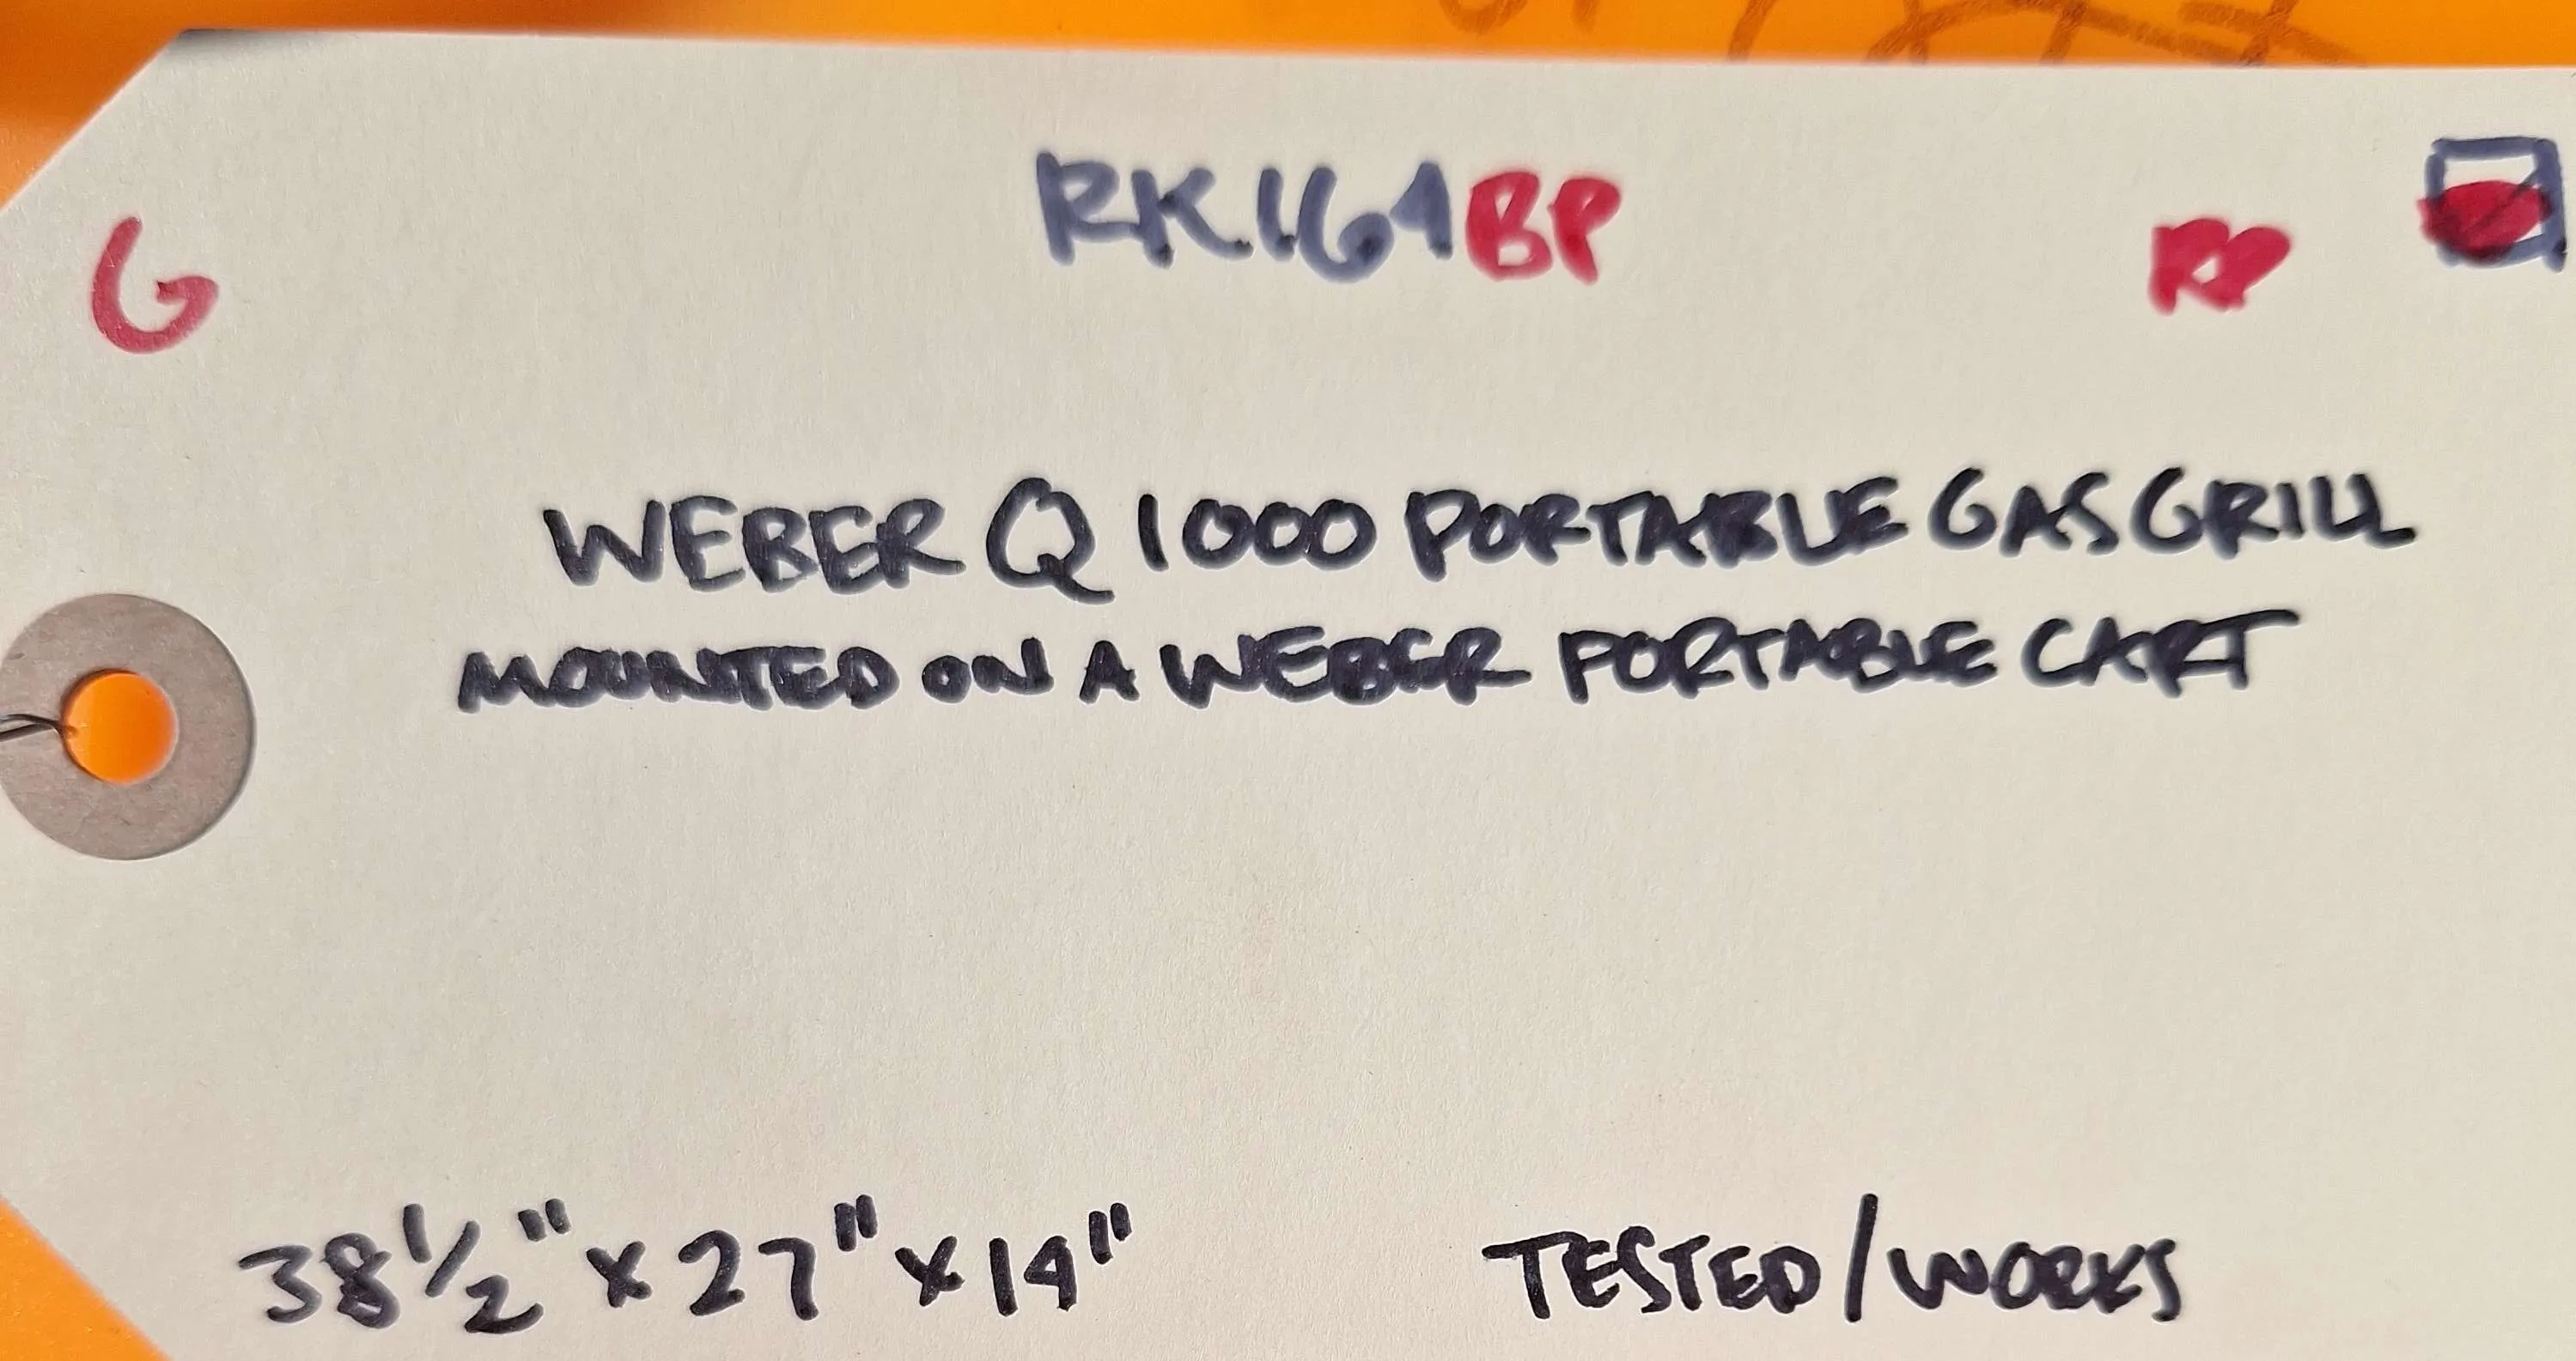 G RK164BP RP
WEBER Q 1000 PORTABLE GAS GRILL
MOUNTED ON A WEBER PORTABLE CART
38 1/2" x 27" x 14" TESTED/WORKS